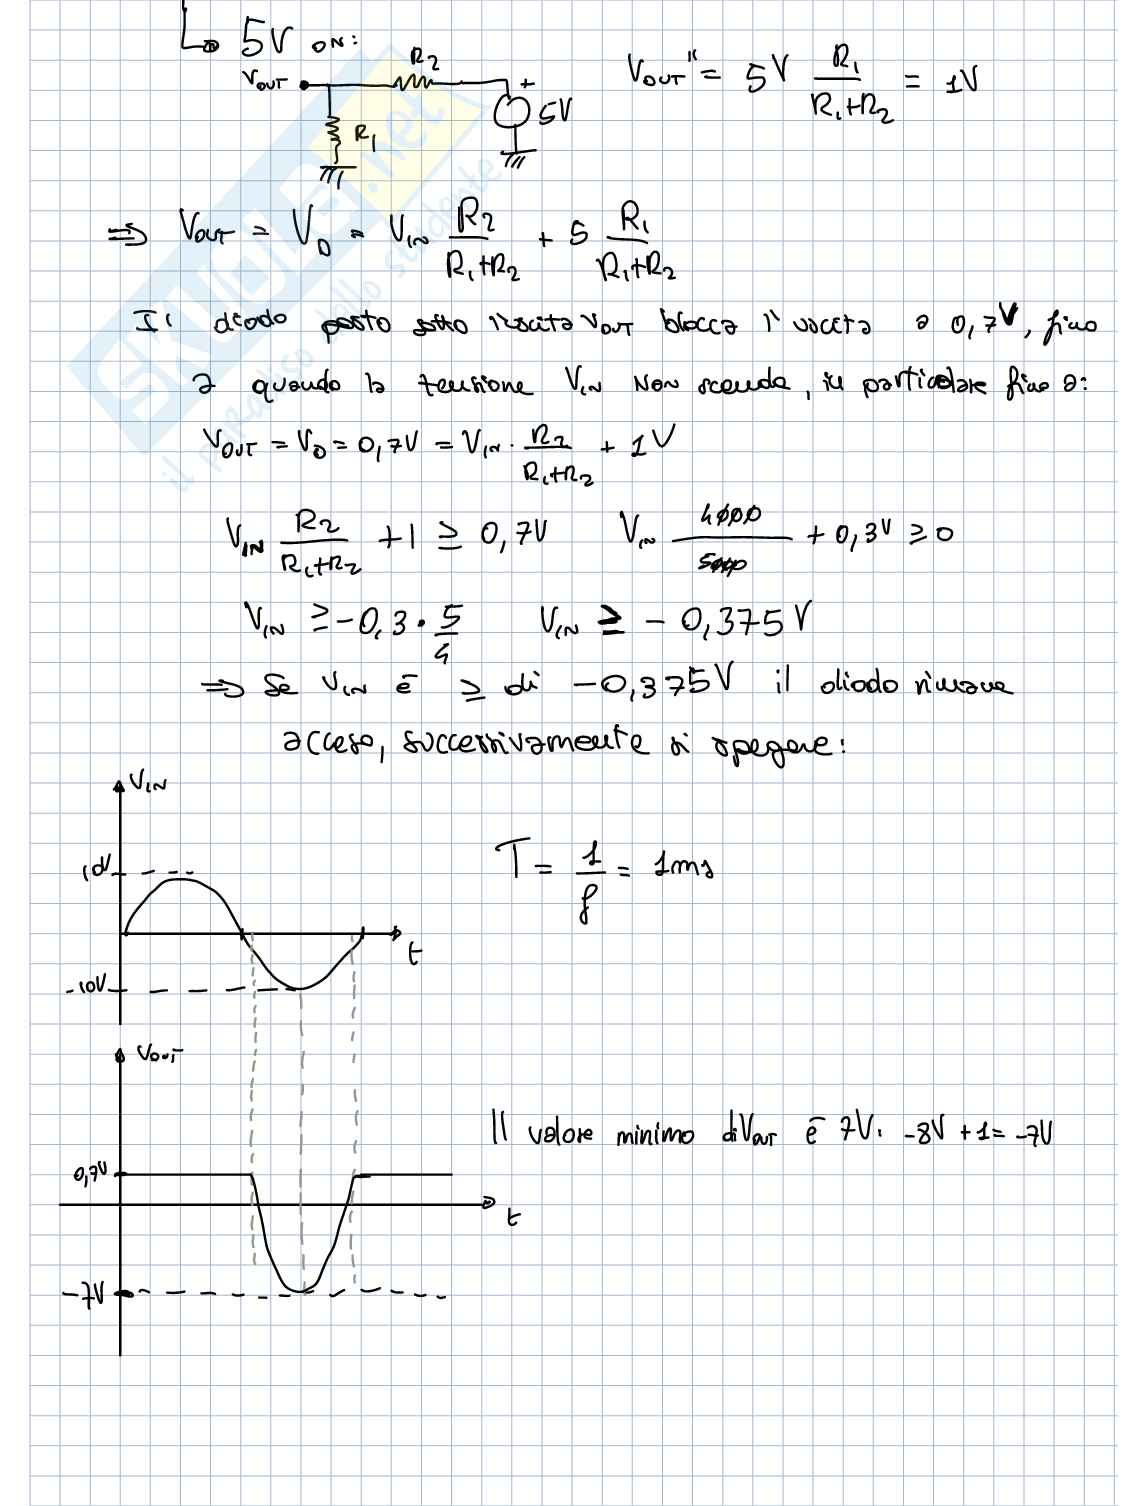 5V ON:
VOUT R2 + 5V R1
VOUT'' = 5V R1/(R1+R2) = 1V
⇒ VOUT = VD = VIN R2/(R1+R2) + 5 R1/(R1+R2)
Il diodo posto sotto l'uscita VOUT blocca l'uscita a 0,7V, fino
a quando la tensione VIN non scenda, in particolare fino a:
VOUT = VD = 0,7V = VIN · R2/(R1+R2) + 1V
VIN R2/(R1+R2) + 1 ≥ 0,7V VIN 4000/5000 + 0,3V ≥ 0
VIN ≥ -0,3 · 5/4 VIN ≥ -0,375V
⇒ Se VIN è ≥ di -0,375V il diodo rimane
acceso, successivamente si spegne:
VIN
10V
T = 1/f = 1ms
t
-10V
VOUT
Il valore minimo di VOUT è 7V: -8V + 1 = -7V
0,7V
t
-7V
SKUOLA.net
il paradiso dello studente